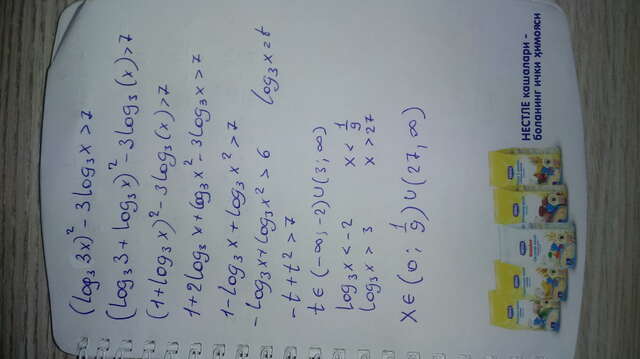 (log₃ 3x)² - 3log₃x > 7
(log₃3 + log₃x)² - 3log₃(x) > 7
(1+log₃x)² - 3log₃(x) > 7
1+2log₃x + log₃x² - 3log₃x > 7
1-log₃x + log₃x² > 7
-log₃x + log₃x² > 6 log₃x = t
-t + t² > 7
t ∈ (-∞; -2) ∪ (3; ∞)
log₃x < -2 x < 1/9
log₃x > 3 x > 27
x ∈ (0; 1/9) ∪ (27, ∞)
НЕСТЛЕ кашалари -
боланинг ички ҳимояси